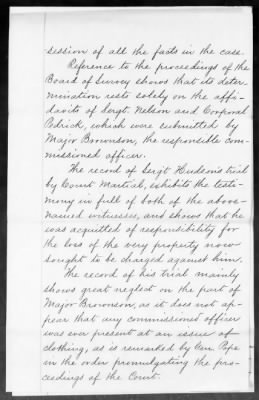 session of all the facts in the case
Reference to the proceedings of the
Board of Survey shows that its deter-
mination rests solely on the affi-
davits of Sergt. Nelson and Corporal
Petrick, which were submitted by
Major Brownson, the responsible com-
missioned officer.
The record of Sergt Hudson's trial
by Court Martial, exhibits the testi-
mony in full of both of the above-
named witnesses, and shows that he
was acquitted of responsibility for
the loss of the very property now
sought to be charged against him.
The record of his trial mainly
shows great neglect on the part of
Major Brownson, as it does not ap-
pear that any commissioned officer
was ever present at an issue of
clothing, as is remarked by Gen Pope
in the order promulgating the pro-
ceedings of the Court.